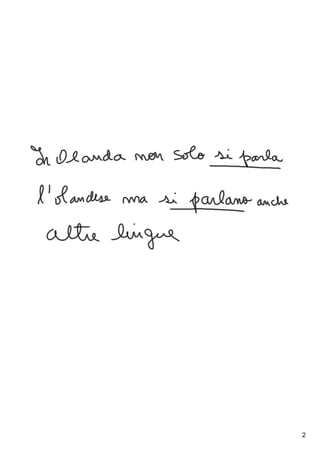 In Olanda non solo si parla
l'olandese ma si parlano anche
altre lingue
2